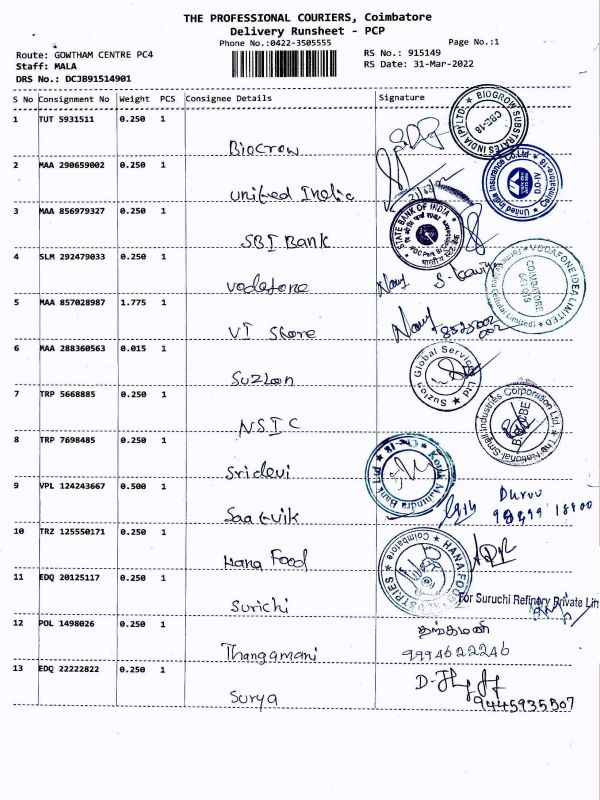 THE PROFESSIONAL COURIERS, Coimbatore
Delivery Runsheet - PCP
Phone No.:0422-3505555
Page No.:1
Route: GOWTHAM CENTRE PC4
RS No.: 915149
Staff: MALA
RS Date: 31-Mar-2022
DRS No.: DCJB91514901
S No Consignment No Weight PCS Consignee Details Signature
1 TUT 5931511 0.250 1
Biocrow
BIOGROW SUBSTRATES INDIA (P) LTD.
CBE-18
2 MAA 290659002 0.250 1
United India
United India Insurance Co.Ltd. Coimbatore-18
D.O-IV
3 MAA 856979327 0.250 1
SBI Bank
STATE BANK OF INDIA
4 SLM 292479033 0.250 1
vodafone
VODAFONE IDEA LIMITED
COIMBATORE
641 018
5 MAA 857028987 1.775 1
VI Store
6 MAA 288360563 0.015 1
Suzlon
Suzlon Global Services Ltd
7 TRP 5668885 0.250 1
NSIC
The National Small Industries Corporation Ltd.
8 TRP 7698485 0.250 1
Sridevi
Kotak Mahindra Bank Ltd
9 VPL 124243667 0.500 1
Saatvik
10 TRZ 125550171 0.250 1
Hana Food
HANA FOOD INDUSTRIES
Coimbatore
11 EDQ 20125117 0.250 1
Surichi
For Suruchi Refinery Private Lim
12 POL 1498026 0.250 1
Thangamani
தங்கமணி
9994622246
13 EDQ 22222822 0.250 1
Surya
9445935507